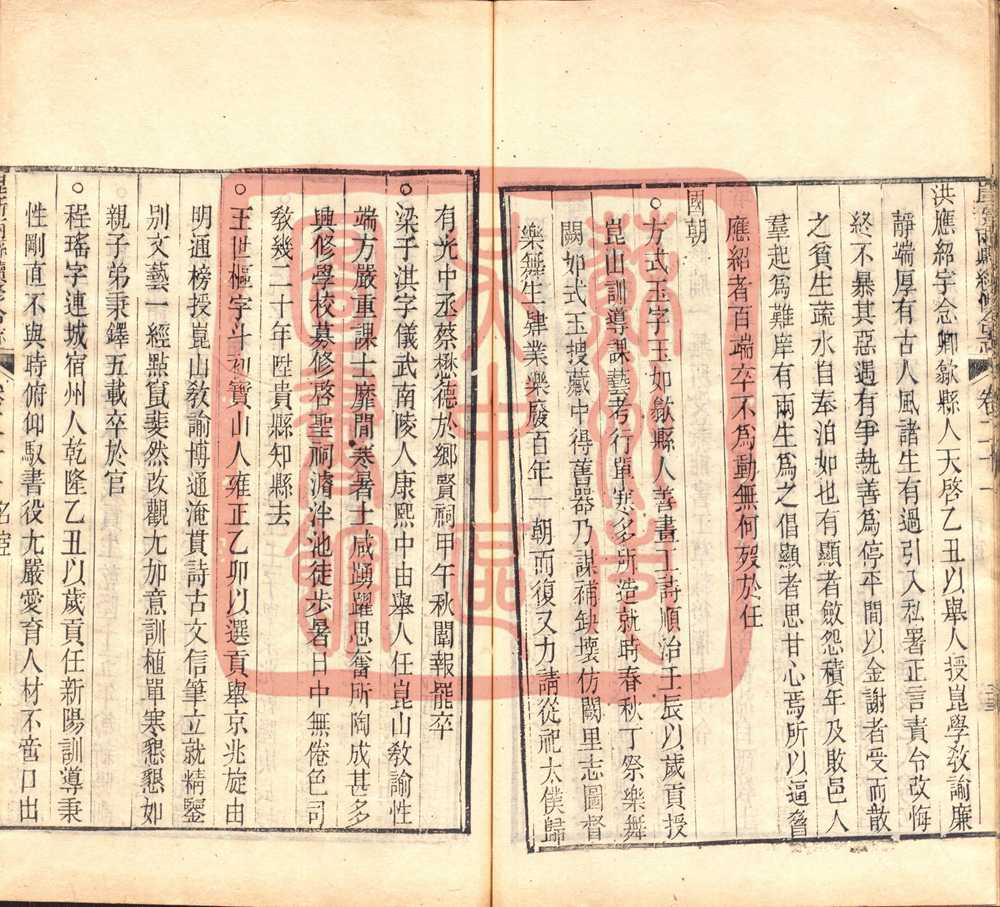 崑新兩縣續修合志 卷二十一
洪應紹字念卿歙縣人天啓乙丑以舉人授崑學敎諭廉
靜端厚有古人風諸生有過引入私署正言責令改悔
終不暴其惡遇有爭執善爲停平間以金謝者受而散
之貧生蔬水自奉泊如也有顯者斂怨積年及敗邑人
羣起爲難庠有兩生爲之倡顯者思甘心焉所以逼脅
應紹者百端卒不爲動無何歿於任
國朝
○方式玉字玉如歙縣人善畫工詩順治壬辰以歲貢授
崑山訓導課藝考行單寒多所造就時春秋丁祭樂舞
闕如式玉搜藏中得舊器乃謀補缺壞仿闕里志圖督
樂舞生肄業樂廢百年一朝而復又力請從祀太僕歸
有光中丞蔡懋德於鄉賢祠甲午秋闈報罷卒
○梁于淇字儀武南陵人康熙中由舉人任崑山敎諭性
端方嚴重課士靡閒寒暑士咸踴躍思奮所陶成甚多
興修學校募修啓聖祠濬泮池徒步暑日中無倦色司
敎幾二十年陞貴縣知縣去
○王世樞字斗初寶山人雍正乙卯以選貢舉京兆旋由
明通榜授崑山敎諭博通淹貫詩古文信筆立就精鑒
別文藝一經點竄斐然改觀尤加意訓植單寒懇懇如
親子弟秉鐸五載卒於官
○程瑤字連城宿州人乾隆乙丑以歲貢任新陽訓導秉
性剛直不與時俯仰馭書役尤嚴愛育人材不啻口出
崑新兩縣續修合志
蘇州市吳中區圖書館